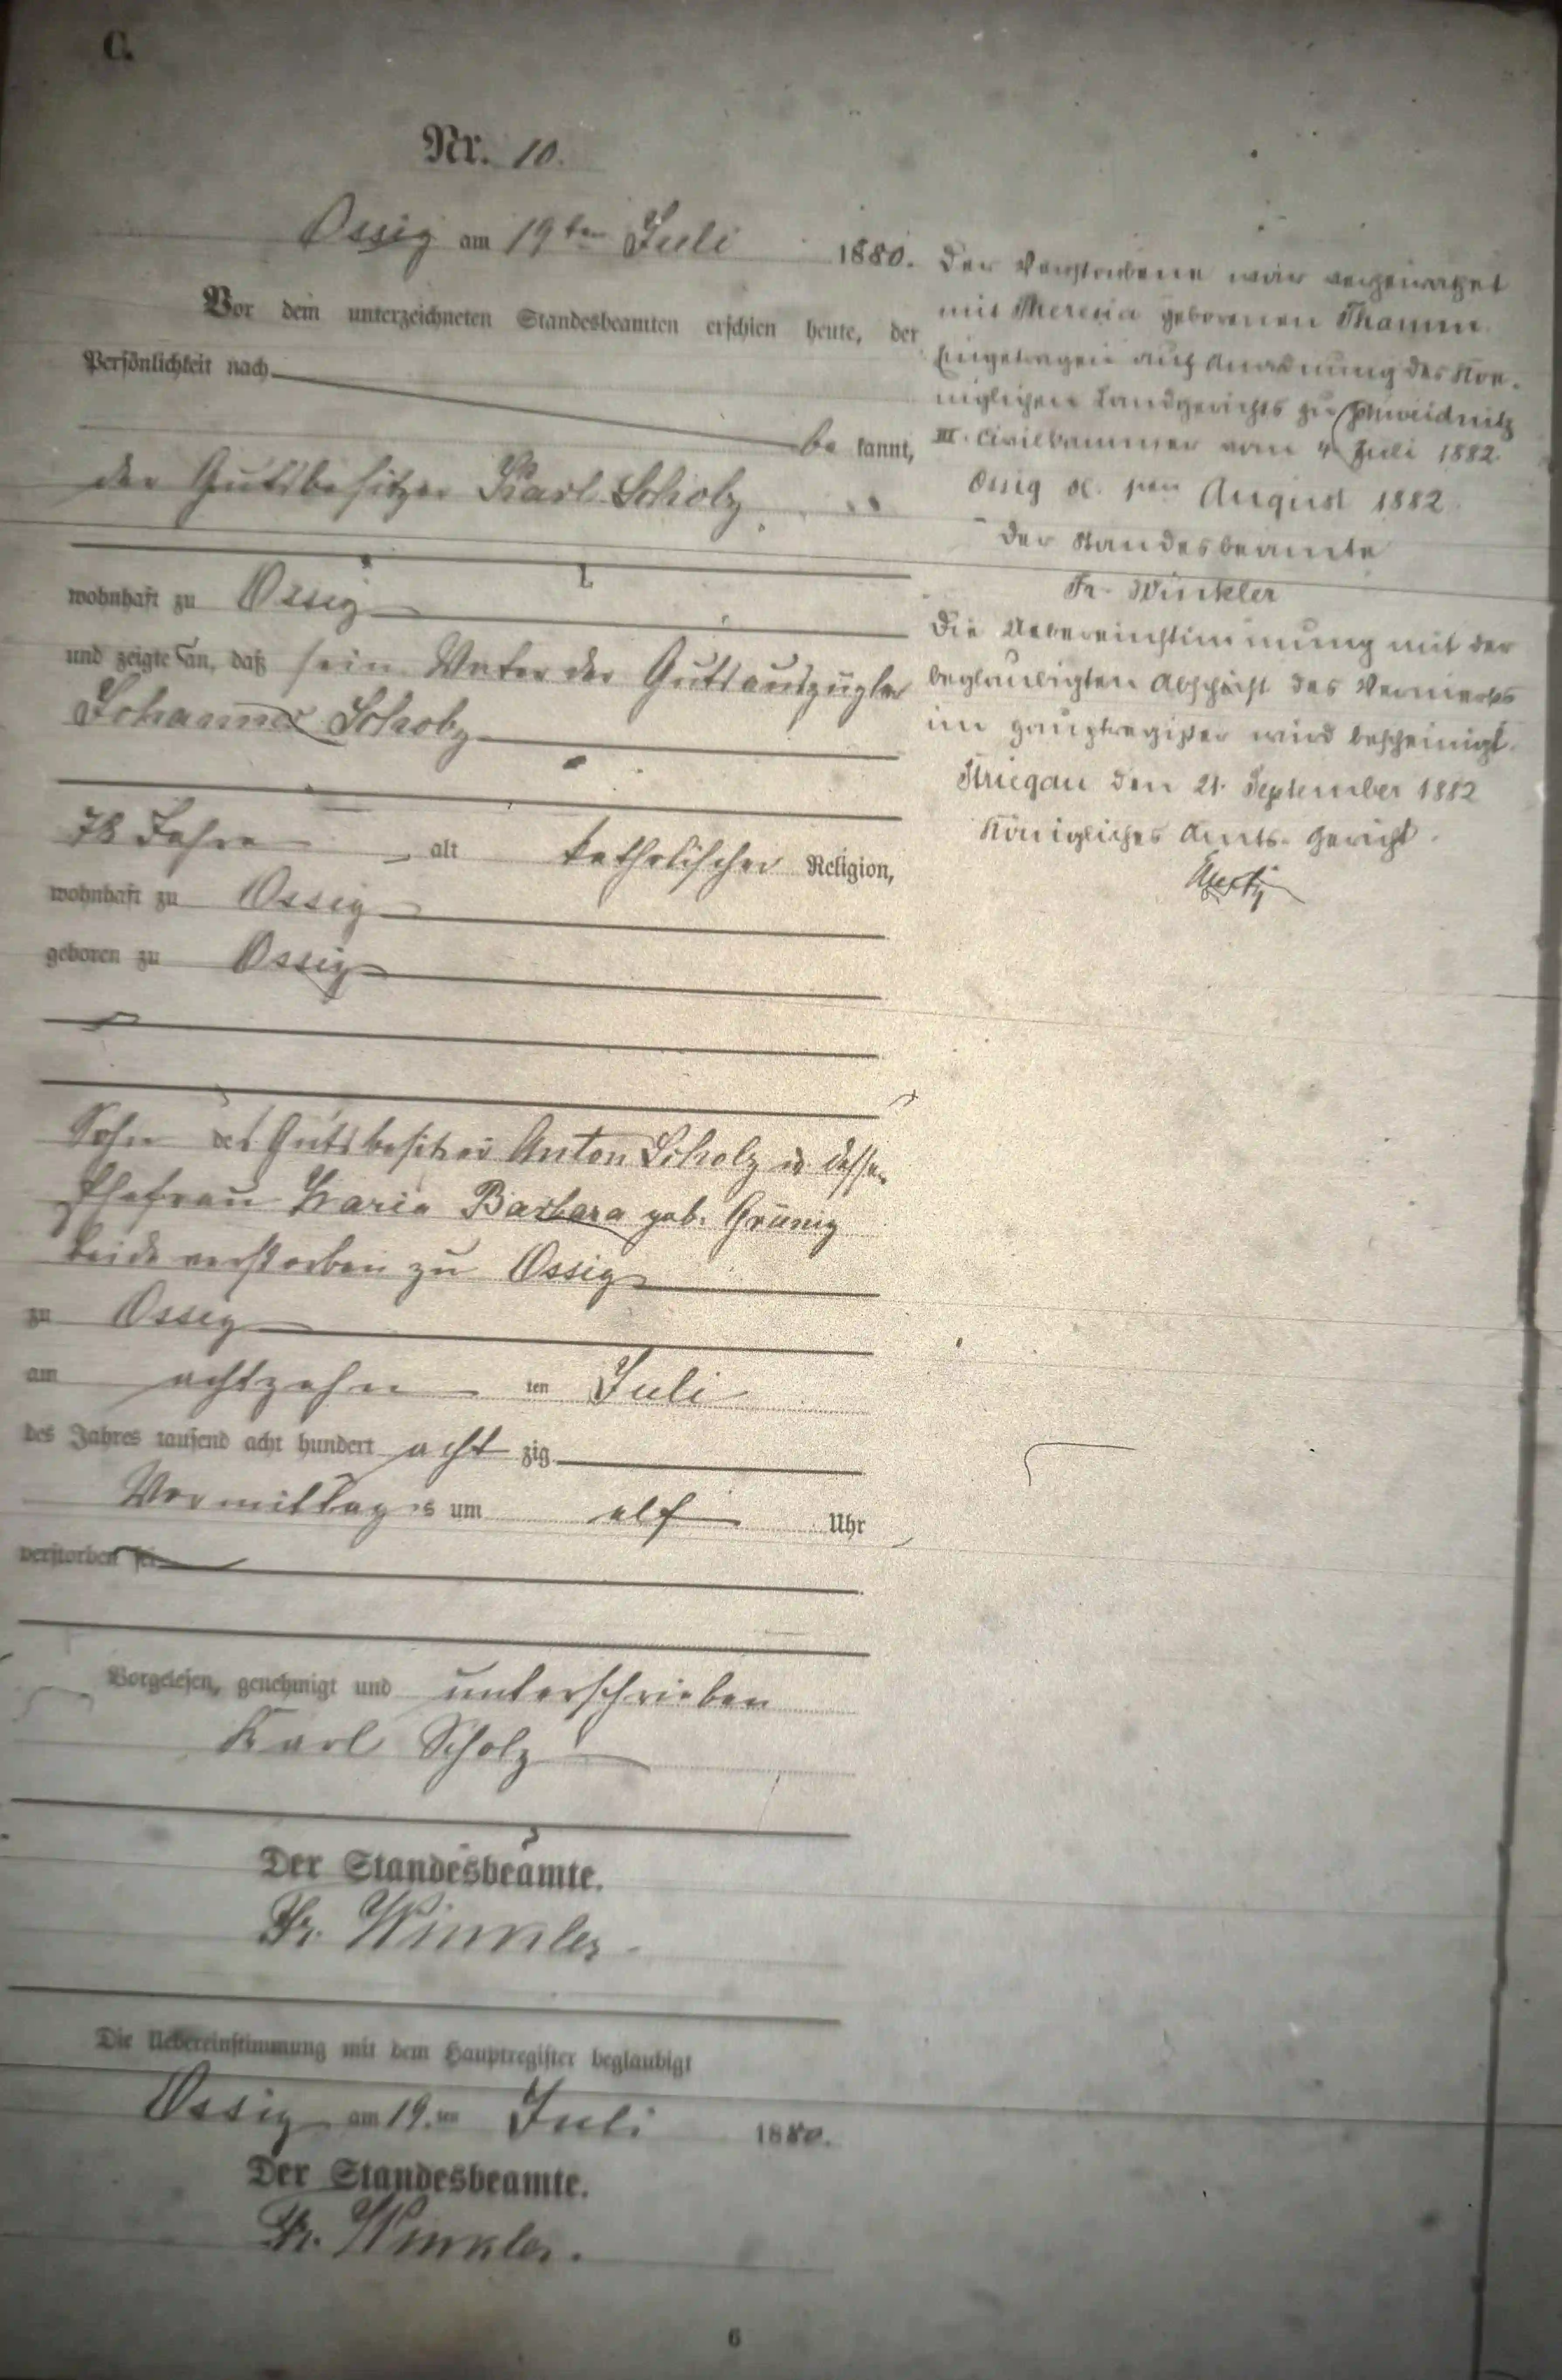 C.
Nr. 10.
Ossig am 19ten Juli 1880.
Vor dem unterzeichneten Standesbeamten erschien heute, der
Persönlichkeit nach
be kannt,
der Gutsbesitzer Karl Scholz
wohnhaft zu Ossig
und zeigte an, daß sein Vater der Gutsauszügler
Johannes Scholz
78 Jahre alt katholischer Religion,
wohnhaft zu Ossig
geboren zu Ossig
Sohn des Gutsbesitzers Anton Scholz u dessen
Ehefrau Maria Barbara geb. Grünig
beide verstorben zu Ossig
zu Ossig
am achtzehn ten Juli
des Jahres tausend acht hundert acht zig
Vormittags um elf Uhr
verstorben sei
Vorgelesen, genehmigt und unterschrieben
Karl Scholz
Der Standesbeamte.
Fr. Winkler.
Die Uebereinstimmung mit dem Hauptregister beglaubigt
Ossig am 19.ten Juli 1880.
Der Standesbeamte.
Fr. Winkler.
6
Der Verstorbene war verheirathet
mit Theresia geborenen Thamm.
Eingetragen auf Anordnung des Kö-
niglichen Landgerichts zu Schweidnitz
III. Civilkammer vom 4. Juli 1882.
Ossig August 1882.
Der Standesbeamte
Fr. Winkler
Die Uebereinstimmung mit der
beglaubigten Abschrift des Vermerks
im Hauptregister wird bescheinigt.
Striegau den 21. September 1882
Königliches Amts-Gericht.